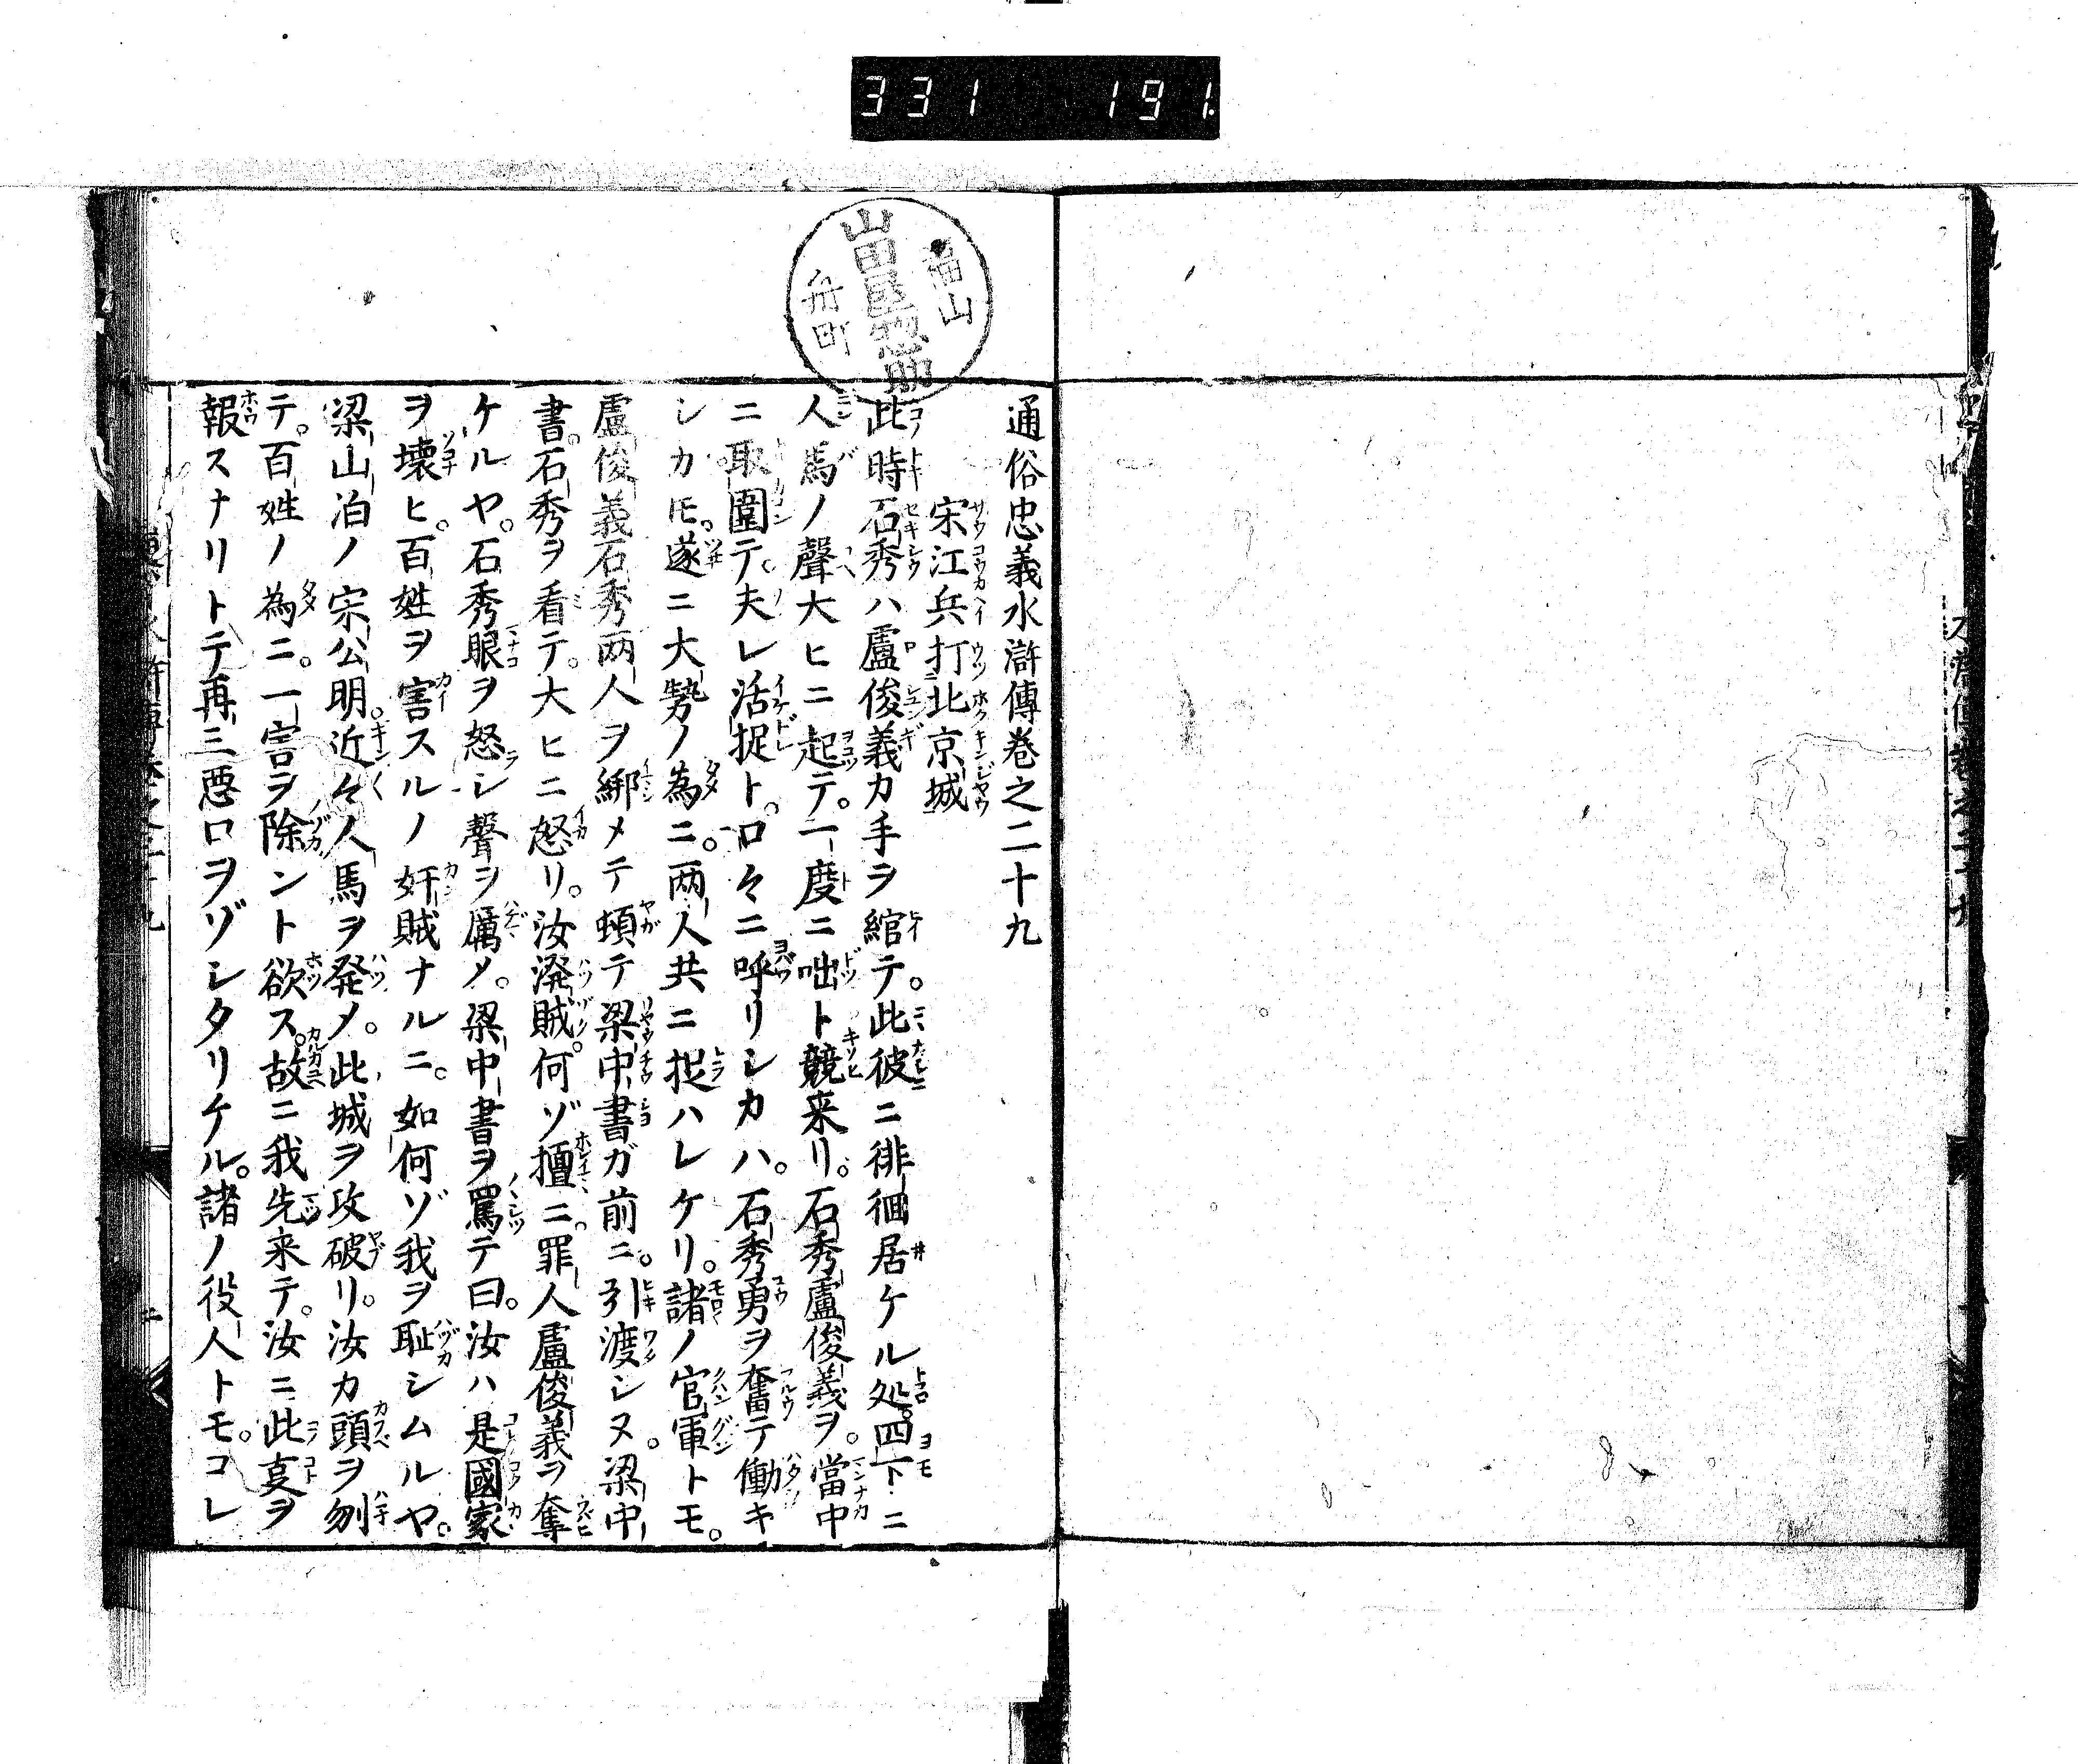 331 191.
福山
山田屋惣助
舟町
通俗忠義水滸傳巻之二十九
宋江兵打北京城
此時石秀ハ盧俊義カ手ヲ綰テ。此彼ニ徘徊居ケル処。四下ニ
人馬ノ聲大ヒニ起テ。一度ニ咄ト競来リ。石秀盧俊義ヲ。當中
ニ取圍テ。夫レ活捉ト。口々ニ呼リシカハ。石秀勇ヲ奮テ働キ
シカ𪜈。遂ニ大勢ノ為ニ。两人共ニ捉ハレケリ。諸ノ官軍トモ。
盧俊義石秀两人ヲ綁メテ頓テ梁中書ガ前ニ。引渡シヌ。梁中
書。石秀ヲ看テ。大ヒニ怒リ。汝潑賊。何ゾ擅ニ。罪人盧俊義ヲ奪
ケルヤ。石秀眼ヲ怒シ聲ヲ厲メ。梁中書ヲ罵テ曰。汝ハ是國家
ヲ壊ヒ。百姓ヲ害スルノ奸賊ナルニ。如何ゾ我ヲ恥シムルヤ。
梁山泊ノ宋公明。近々人馬ヲ発メ。此城ヲ攻破リ。汝カ頭ヲ刎
テ。百姓ノ為ニ。一害ヲ除ント欲ス。故ニ我先来テ。汝ニ此㕝ヲ
報スナリトテ再三悪口ヲゾシタリケル。諸ノ役人トモ。コレ